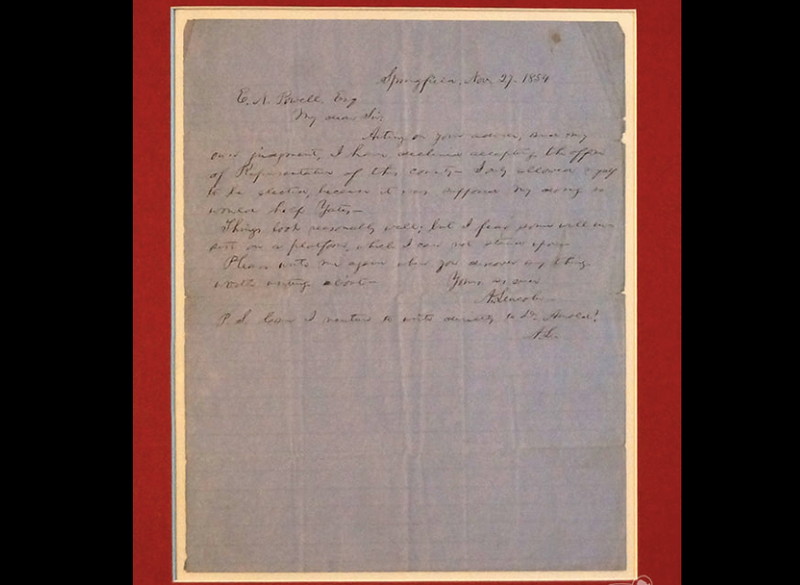 Springfield, Nov. 27. 1854
E. N. Powell, Esq
My dear Sir;
Acting on your advice, and my
own judgment, I have declined accepting the office
of Representative of this county— I only allowed myself
to be elected, because it was supposed my doing so
would help Yates—
Things look reasonably well; but I fear some will in-
sist on a platform, which I can not stand upon—
Please write me again when you discover any thing
worth writing about—    Yours as ever
A. Lincoln—
P. S. Can I venture to write directly to Dr. Arnold?
A. L.